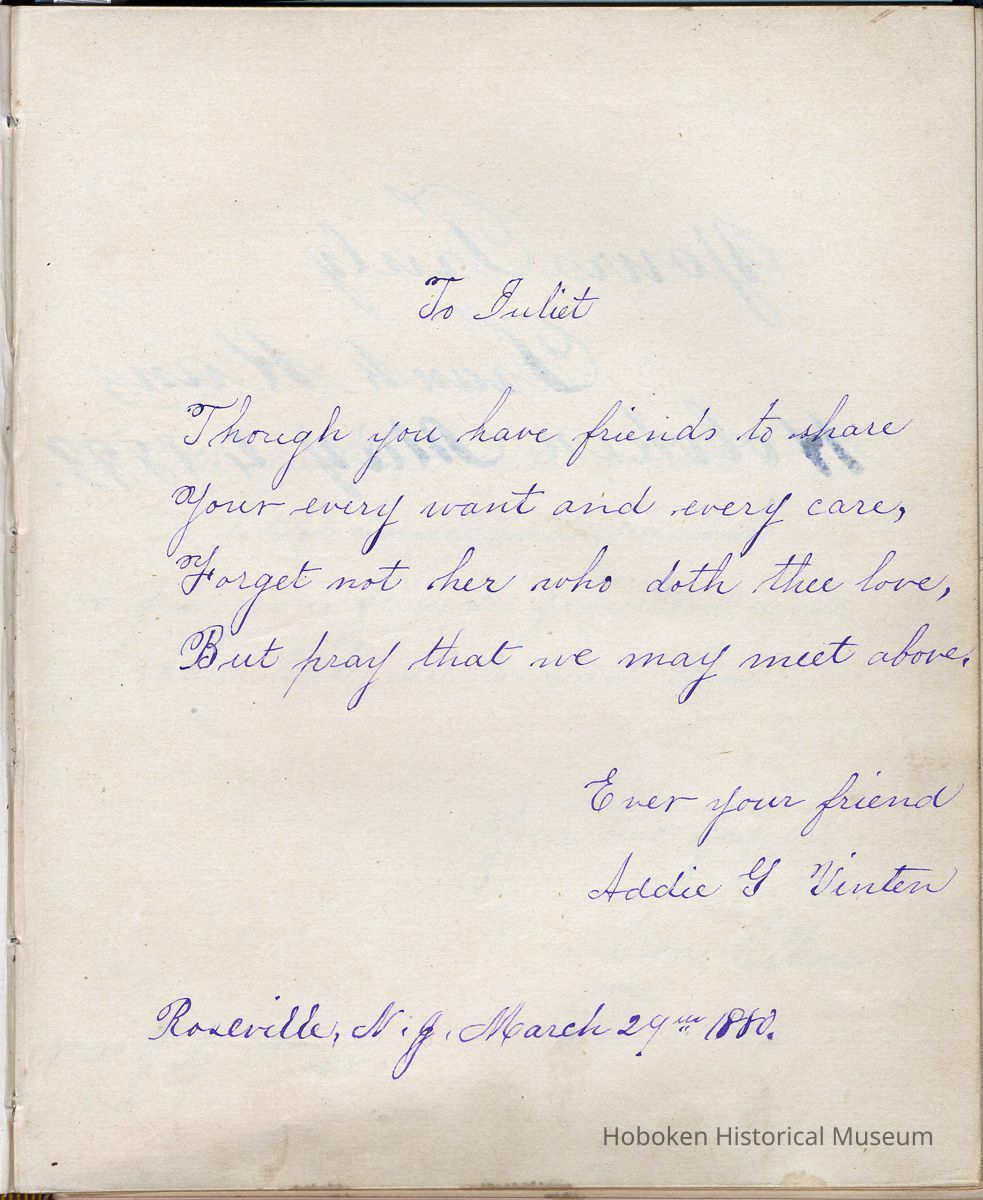 To Juliet
Though you have friends to share
Your every want and every care,
Forget not her who doth thee love,
But pray that we may meet above.
Ever your friend
Addie G Vinten
Roseville, N.J. March 29th 1880.
Hoboken Historical Museum